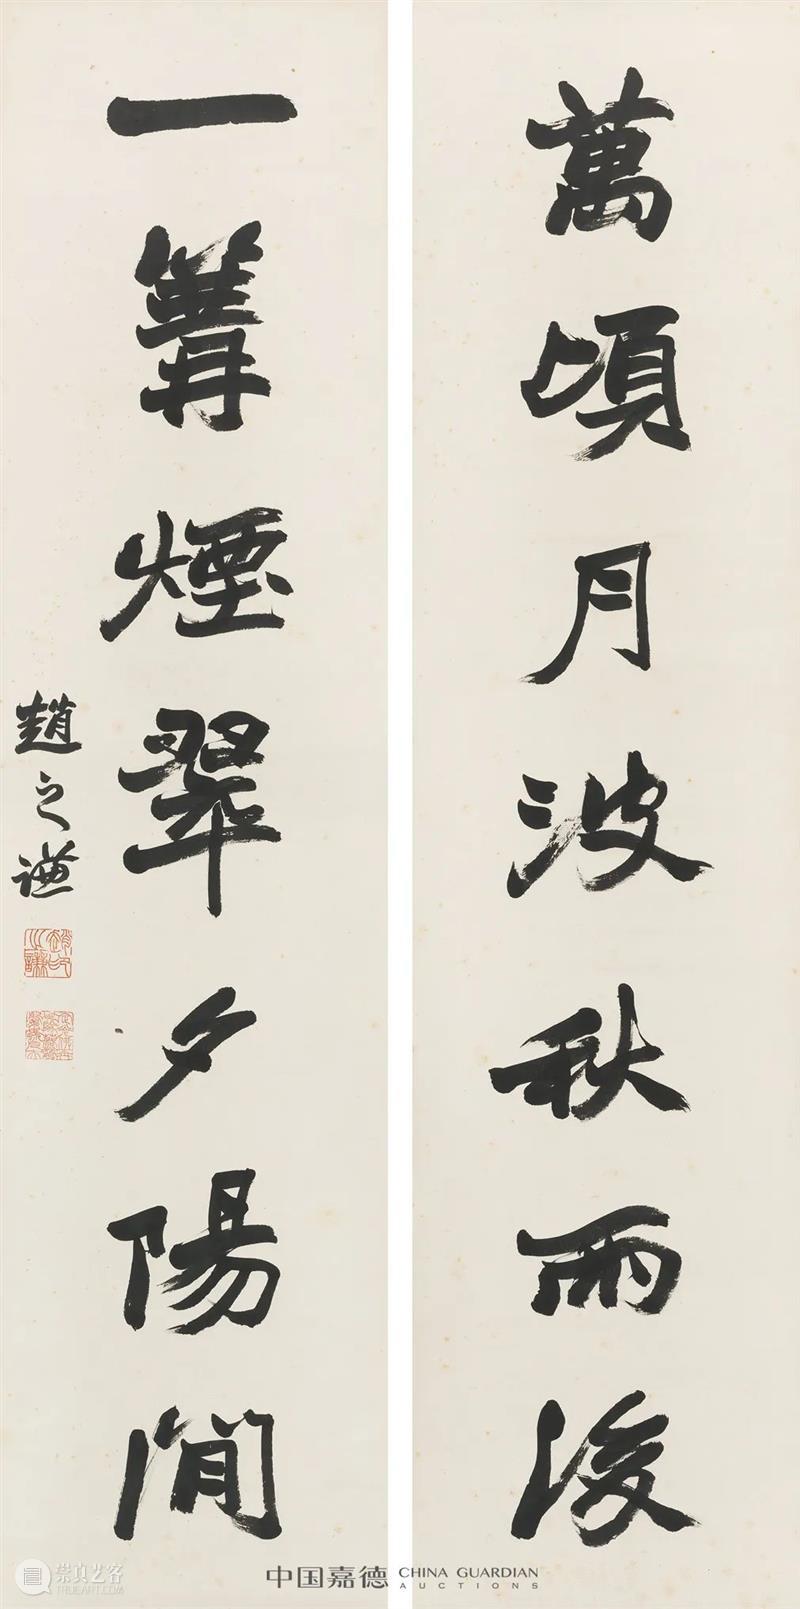 萬頃月波秋雨後
一篝煙翠夕陽間
趙之謙
趙之謙
中国嘉德 CHINA GUARDIAN AUCTIONS
崇真艺客
TRUEART.COM